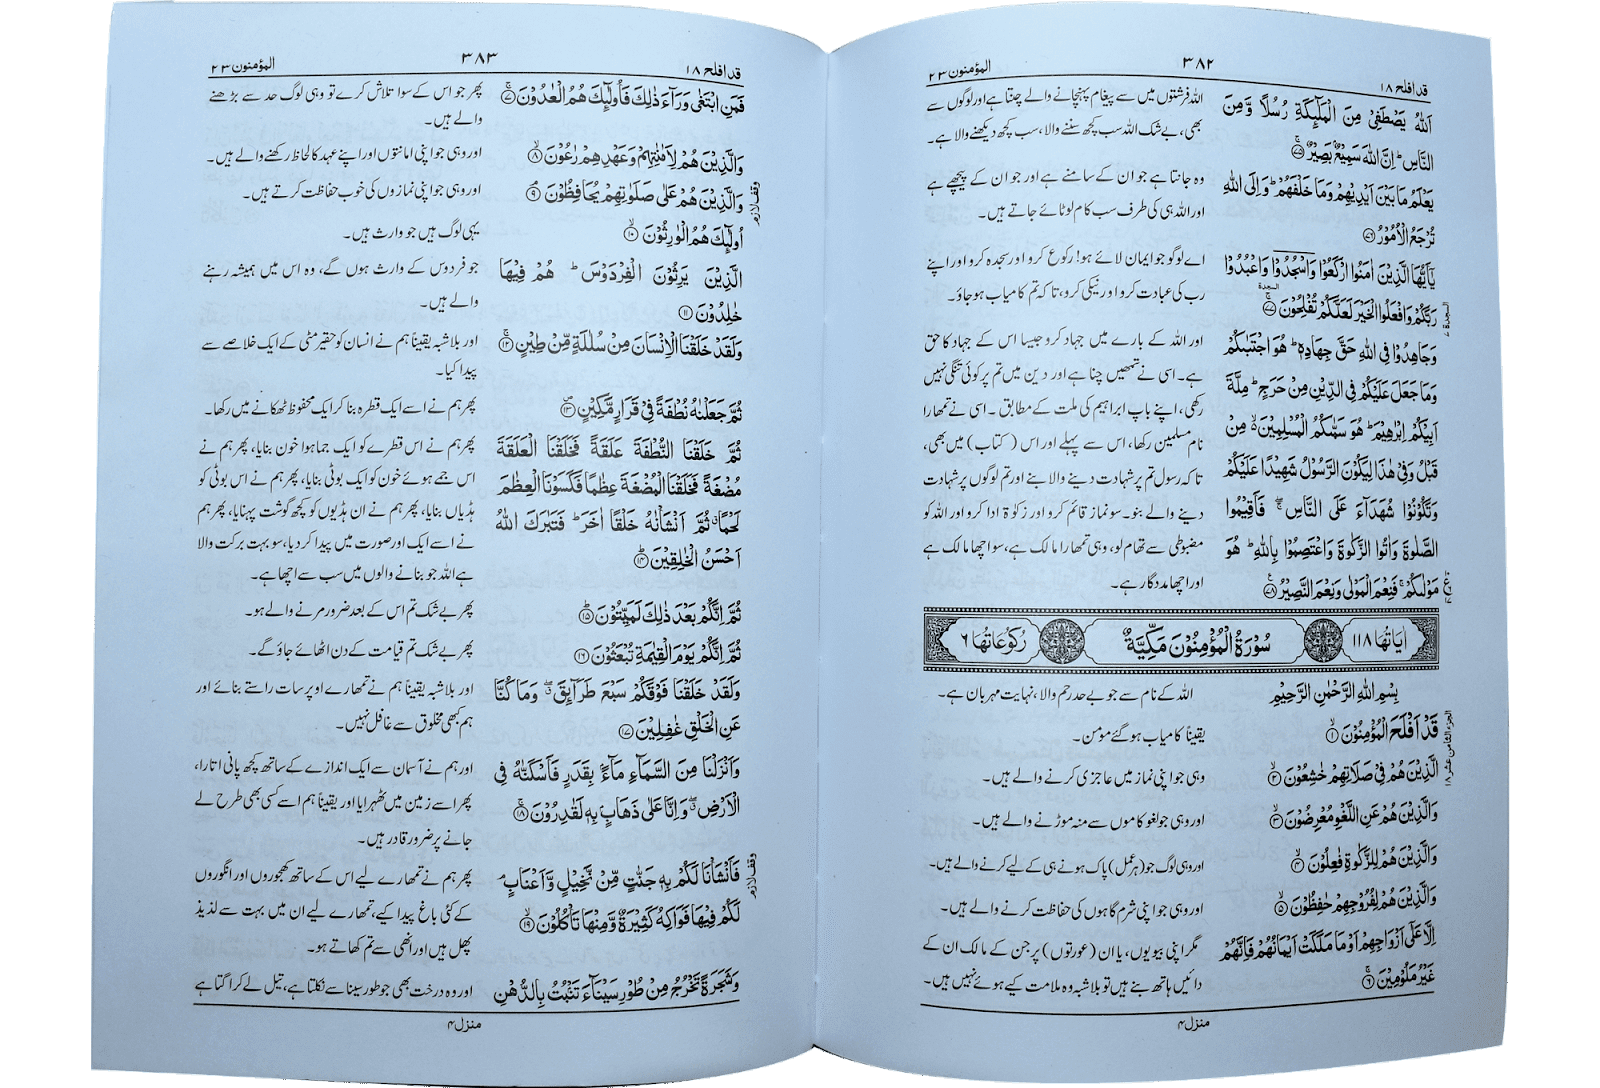 قدافلح ۱۸
۳۸۲
المؤمنون ۲۳
اَللّٰهُ يَصْطَفِيْ مِنَ الْمَلٰٓئِكَةِ رُسُلًا وَّمِنَ
النَّاسِ ؕ اِنَّ اللّٰهَ سَمِيْعٌۢ بَصِيْرٌ ۚ۝۷۵
يَعْلَمُ مَا بَيْنَ اَيْدِيْهِمْ وَمَا خَلْفَهُمْ ؕ وَاِلَى اللّٰهِ
تُرْجَعُ الْاُمُوْرُ ۝۷۶
يٰٓاَيُّهَا الَّذِيْنَ اٰمَنُوا ارْكَعُوْا وَاسْجُدُوْا وَاعْبُدُوْا
رَبَّكُمْ وَافْعَلُوا الْخَيْرَ لَعَلَّكُمْ تُفْلِحُوْنَ ۝۷۷
وَجَاهِدُوْا فِي اللّٰهِ حَقَّ جِهَادِهٖ ؕ هُوَ اجْتَبٰىكُمْ
وَمَا جَعَلَ عَلَيْكُمْ فِي الدِّيْنِ مِنْ حَرَجٍ ؕ مِلَّةَ
اَبِيْكُمْ اِبْرٰهِيْمَ ؕ هُوَ سَمّٰىكُمُ الْمُسْلِمِيْنَ ۙ مِنْ
قَبْلُ وَفِيْ هٰذَا لِيَكُوْنَ الرَّسُوْلُ شَهِيْدًا عَلَيْكُمْ
وَتَكُوْنُوْا شُهَدَآءَ عَلَى النَّاسِ ۖۚ فَاَقِيْمُوا
الصَّلٰوةَ وَاٰتُوا الزَّكٰوةَ وَاعْتَصِمُوْا بِاللّٰهِ ؕ هُوَ
مَوْلٰىكُمْ ۚ فَنِعْمَ الْمَوْلٰى وَنِعْمَ النَّصِيْرُ ۝۷۸
اللہ فرشتوں میں سے پیغام پہنچانے والے چنتا ہے اور لوگوں سے
بھی، بے شک اللہ سب کچھ سننے والا، سب کچھ دیکھنے والا ہے۔
وہ جانتا ہے جو ان کے سامنے ہے اور جو ان کے پیچھے ہے
اور اللہ ہی کی طرف سب کام لوٹائے جاتے ہیں۔
اے لوگو جو ایمان لائے ہو! رکوع کرو اور سجدہ کرو اور اپنے
رب کی عبادت کرو اور نیکی کرو، تاکہ تم کامیاب ہو جاؤ۔
اور اللہ کے بارے میں جہاد کرو جیسا اس کے جہاد کا حق
ہے۔ اسی نے تمھیں چنا ہے اور دین میں تم پر کوئی تنگی نہیں
رکھی، اپنے باپ ابراہیم کی ملت کے مطابق۔ اسی نے تمھارا
نام مسلمین رکھا، اس سے پہلے اور اس (کتاب) میں بھی،
تاکہ رسول تم پر شہادت دینے والا بنے اور تم لوگوں پر شہادت
دینے والے بنو۔ سو نماز قائم کرو اور زکوۃ ادا کرو اور اللہ کو
مضبوطی سے تھام لو، وہی تمھارا مالک ہے، سو اچھا مالک ہے
اور اچھا مددگار ہے۔
السجدة
السجدة ۷
اٰيَاتُهَا ۱۱۸
سُوْرَةُ الْمُؤْمِنُوْنَ مَكِّيَّةٌ
رُكُوْعَاتُهَا ۶
بِسْمِ اللّٰهِ الرَّحْمٰنِ الرَّحِيْمِ
قَدْ اَفْلَحَ الْمُؤْمِنُوْنَ ۙ۝۱
الَّذِيْنَ هُمْ فِيْ صَلَاتِهِمْ خٰشِعُوْنَ ۙ۝۲
وَالَّذِيْنَ هُمْ عَنِ اللَّغْوِ مُعْرِضُوْنَ ۙ۝۳
وَالَّذِيْنَ هُمْ لِلزَّكٰوةِ فٰعِلُوْنَ ۙ۝۴
وَالَّذِيْنَ هُمْ لِفُرُوْجِهِمْ حٰفِظُوْنَ ۙ۝۵
اِلَّا عَلٰٓى اَزْوَاجِهِمْ اَوْ مَا مَلَكَتْ اَيْمَانُهُمْ فَاِنَّهُمْ
غَيْرُ مَلُوْمِيْنَ ۚ۝۶
اللہ کے نام سے جو بے حد رحم والا، نہایت مہربان ہے۔
یقیناً کامیاب ہو گئے مومن۔
وہی جو اپنی نماز میں عاجزی کرنے والے ہیں۔
اور وہی جو لغو کاموں سے منہ موڑنے والے ہیں۔
اور وہی لوگ جو (ہر عمل) پاک ہونے ہی کے لیے کرنے والے ہیں۔
اور وہی جو اپنی شرم گاہوں کی حفاظت کرنے والے ہیں۔
مگر اپنی بیویوں، یا ان (عورتوں) پر جن کے مالک ان کے
دائیں ہاتھ بنے ہیں تو بلاشبہ وہ ملامت کیے ہوئے نہیں ہیں۔
الجزء الثامن عشر ۱۸
منزل ۴
قدافلح ۱۸
۳۸۳
المؤمنون ۲۳
فَمَنِ ابْتَغٰى وَرَآءَ ذٰلِكَ فَاُولٰٓئِكَ هُمُ الْعٰدُوْنَ ۚ۝۷
وَالَّذِيْنَ هُمْ لِاَمٰنٰتِهِمْ وَعَهْدِهِمْ رٰعُوْنَ ۙ۝۸
وَالَّذِيْنَ هُمْ عَلٰى صَلَوٰتِهِمْ يُحَافِظُوْنَ ۘ۝۹
اُولٰٓئِكَ هُمُ الْوٰرِثُوْنَ ۙ۝۱۰
الَّذِيْنَ يَرِثُوْنَ الْفِرْدَوْسَ ؕ هُمْ فِيْهَا
خٰلِدُوْنَ ۝۱۱
وَلَقَدْ خَلَقْنَا الْاِنْسَانَ مِنْ سُلٰلَةٍ مِّنْ طِيْنٍ ۚ۝۱۲
ثُمَّ جَعَلْنٰهُ نُطْفَةً فِيْ قَرَارٍ مَّكِيْنٍ ۝۱۳
ثُمَّ خَلَقْنَا النُّطْفَةَ عَلَقَةً فَخَلَقْنَا الْعَلَقَةَ
مُضْغَةً فَخَلَقْنَا الْمُضْغَةَ عِظٰمًا فَكَسَوْنَا الْعِظٰمَ
لَحْمًا ۗ ثُمَّ اَنْشَاْنٰهُ خَلْقًا اٰخَرَ ؕ فَتَبٰرَكَ اللّٰهُ
اَحْسَنُ الْخٰلِقِيْنَ ؕ۝۱۴
ثُمَّ اِنَّكُمْ بَعْدَ ذٰلِكَ لَمَيِّتُوْنَ ؕ۝۱۵
ثُمَّ اِنَّكُمْ يَوْمَ الْقِيٰمَةِ تُبْعَثُوْنَ ۝۱۶
وَلَقَدْ خَلَقْنَا فَوْقَكُمْ سَبْعَ طَرَآئِقَ ۖ وَمَا كُنَّا
عَنِ الْخَلْقِ غٰفِلِيْنَ ۝۱۷
وَاَنْزَلْنَا مِنَ السَّمَآءِ مَآءًۢ بِقَدَرٍ فَاَسْكَنّٰهُ فِي
الْاَرْضِ ۖ وَاِنَّا عَلٰى ذَهَابٍۭ بِهٖ لَقٰدِرُوْنَ ۚ۝۱۸
فَاَنْشَاْنَا لَكُمْ بِهٖ جَنّٰتٍ مِّنْ نَّخِيْلٍ وَّاَعْنَابٍ ۘ
لَكُمْ فِيْهَا فَوَاكِهُ كَثِيْرَةٌ وَّمِنْهَا تَاْكُلُوْنَ ۙ۝۱۹
وَشَجَرَةً تَخْرُجُ مِنْ طُوْرِ سَيْنَآءَ تَنْۢبُتُ بِالدُّهْنِ
پھر جو اس کے سوا تلاش کرے تو وہی لوگ حد سے بڑھنے
والے ہیں۔
اور وہی جو اپنی امانتوں اور اپنے عہد کا لحاظ رکھنے والے ہیں۔
اور وہی جو اپنی نمازوں کی خوب حفاظت کرتے ہیں۔
یہی لوگ ہیں جو وارث ہیں۔
جو فردوس کے وارث ہوں گے، وہ اس میں ہمیشہ رہنے
والے ہیں۔
اور بلاشبہ یقیناً ہم نے انسان کو حقیر مٹی کے ایک خلاصے سے
پیدا کیا۔
پھر ہم نے اسے ایک قطرہ بنا کر ایک محفوظ ٹھکانے میں رکھا۔
پھر ہم نے اس قطرے کو ایک جما ہوا خون بنایا، پھر ہم نے
اس جمے ہوئے خون کو ایک بوٹی بنایا، پھر ہم نے اس بوٹی کو
ہڈیاں بنایا، پھر ہم نے ان ہڈیوں کو کچھ گوشت پہنایا، پھر ہم
نے اسے ایک اور صورت میں پیدا کر دیا، سو بہت برکت والا
ہے اللہ جو بنانے والوں میں سب سے اچھا ہے۔
پھر بے شک تم اس کے بعد ضرور مرنے والے ہو۔
پھر بے شک تم قیامت کے دن اٹھائے جاؤ گے۔
اور بلاشبہ یقیناً ہم نے تمھارے اوپر سات راستے بنائے اور
ہم کبھی مخلوق سے غافل نہیں۔
اور ہم نے آسمان سے ایک اندازے کے ساتھ کچھ پانی اتارا،
پھر اسے زمین میں ٹھہرایا اور یقیناً ہم اسے کسی بھی طرح لے
جانے پر ضرور قادر ہیں۔
پھر ہم نے تمھارے لیے اس کے ساتھ کھجوروں اور انگوروں
کے کئی باغ پیدا کیے، تمھارے لیے ان میں بہت سے لذیذ
پھل ہیں اور انھی سے تم کھاتے ہو۔
اور وہ درخت بھی جو طور سینا سے نکلتا ہے، تیل لے کر اگتا ہے
وقف لازم
وقف لازم
منزل ۴